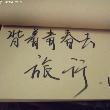 背着青春去
旅行